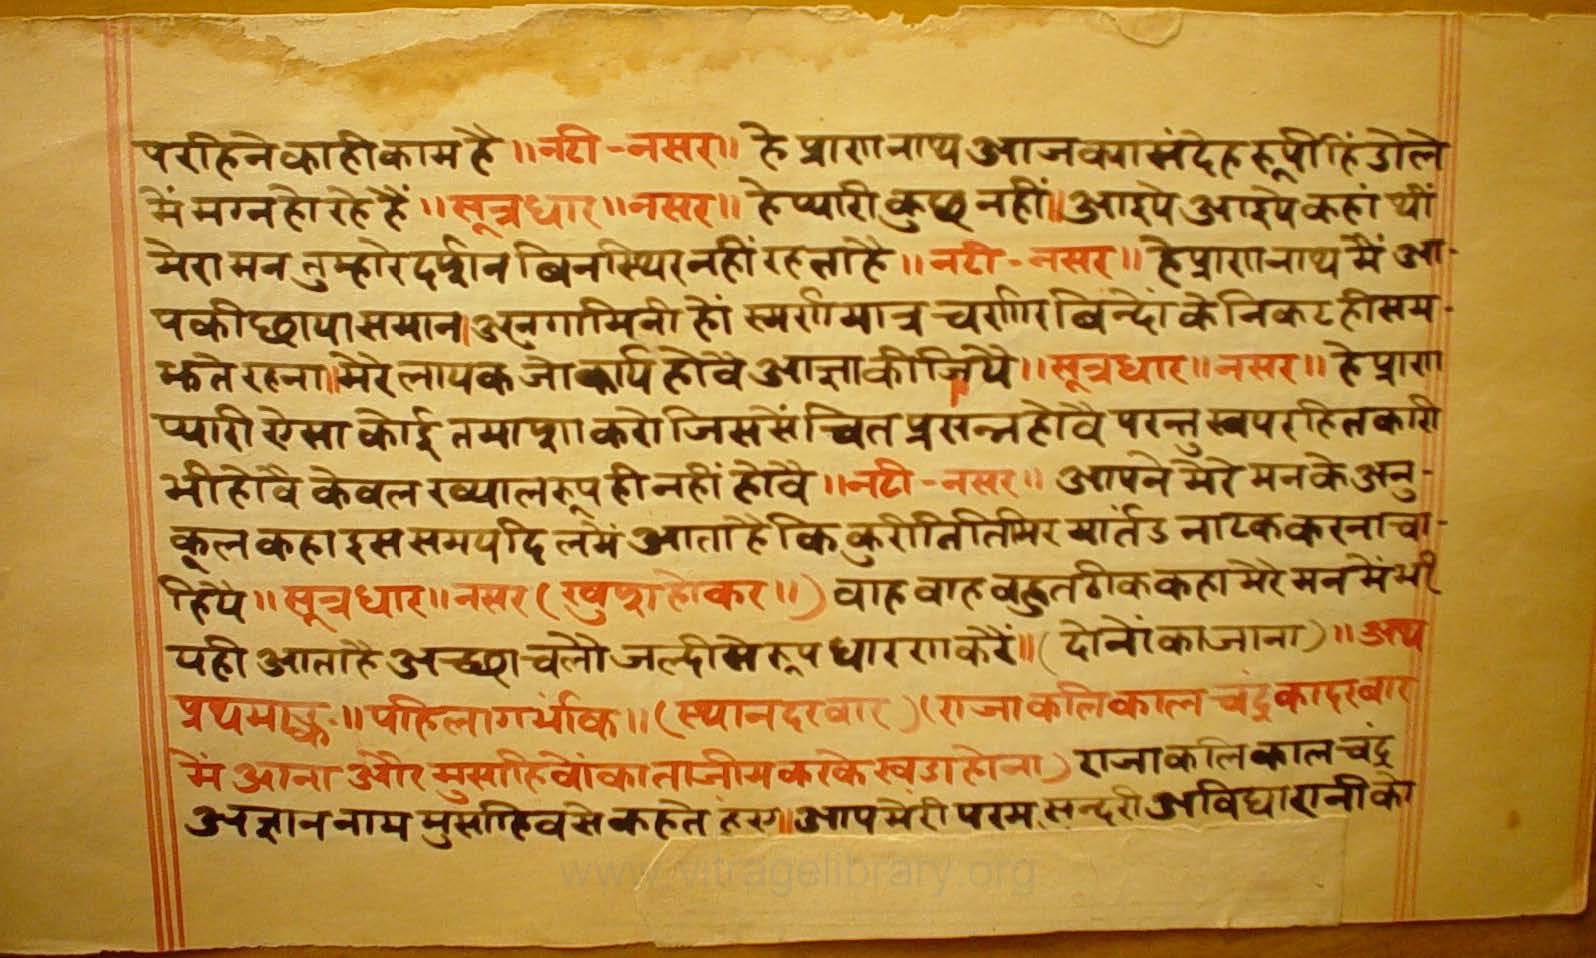 परहिने का ही काम है ॥ नटी - नसर ॥ हे प्राणनाथ आज क्या संदेह रूपी हिंडोले
में मग्न हो रहे हैं ॥ सूत्रधार ॥ नसर ॥ हे प्यारी कुछ नहीं ॥ आइये आइये कहां थीं
मेरा मन तुम्हारे दर्शन बिन स्थिर नहीं रहता है ॥ नटी - नसर ॥ हे प्राणनाथ मैं आ-
पकी छाया समान अनुगामिनी हों स्मर्ण मात्र चर्णारबिन्दों के निकट ही सम-
झते रहना ॥ मेरे लायक जो कार्य होवै आज्ञा कीजियै ॥ सूत्रधार ॥ नसर ॥ हे प्राण
प्यारी ऐसा कोई तमाशा करो जिससें चित प्रसन्न होवै परन्तु स्वपरहितकारी
भी होवै केवल ख्याल रूप ही नहीं होवै ॥ नटी - नसर ॥ आपने मेरे मन के अनु-
कूल कहा इस समय दिल में आता है कि कुरीति तिमिर मार्तंड नाटक करना चा-
हियै ॥ सूत्रधार ॥ नसर (खुश होकर ॥) वाह वाह बहुत ठीक कहा मेरे मन में भी
यही आता है अच्छा चलौ जल्दी से रूप धारण करैं ॥ (दोनों का जाना) ॥ अथ
प्रथमाङ्क ॥ पहिला गर्भांक ॥ (स्थान दरबार) (राजा कलिकाल चंद्र का दरबार
में आना और मुसाहिबों का ताजीम करके खडा होना) राजा कलिकाल चंद्र
अज्ञान नाम मुसाहिब से कहते हैं ॥ आप मेरी परम सुन्दरी अविद्या रानी को
www.vitragelibrary.org